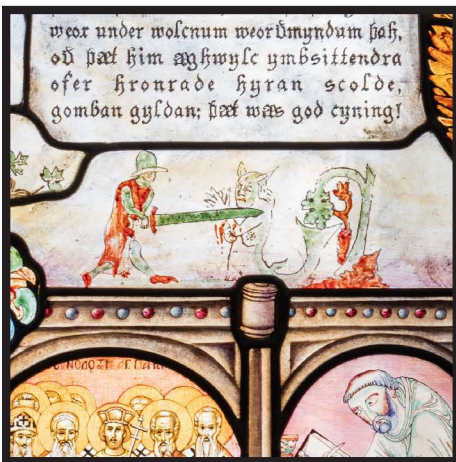 weox under wolcnum weorðmyndum þah,
oð þæt him æghwylc ymbsittendra
ofer hronrade hyran scolde,
gomban gyldan; þæt wæs god cyning!